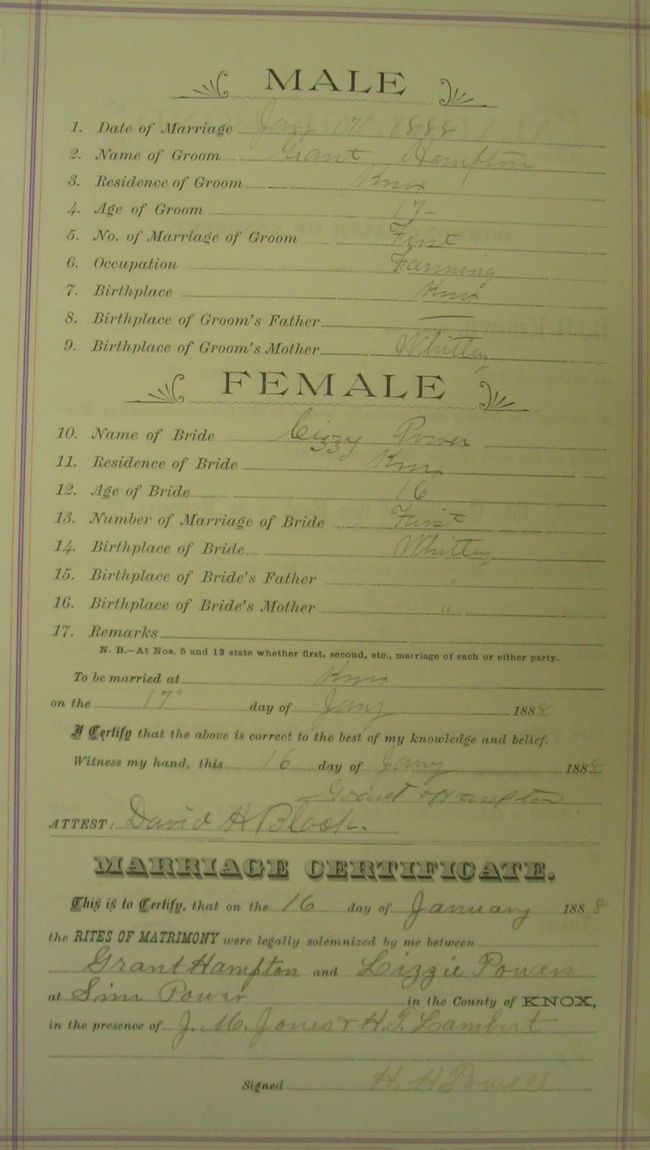 MALE
1. Date of Marriage Jany 17" 1888
2. Name of Groom Grant Hampton
3. Residence of Groom Knox
4. Age of Groom 17-
5. No. of Marriage of Groom First
6. Occupation Farming
7. Birthplace Knox
8. Birthplace of Groom's Father —
9. Birthplace of Groom's Mother Whitley
FEMALE
10. Name of Bride Power
11. Residence of Bride Knox
12. Age of Bride 16
13. Number of Marriage of Bride First
14. Birthplace of Bride Whitley
15. Birthplace of Bride's Father "
16. Birthplace of Bride's Mother "
17. Remarks
N. B.—At Nos. 5 and 13 state whether first, second, etc., marriage of each or either party.
To be married at Knox
on the 17" day of Jany 1888
I Certify that the above is correct to the best of my knowledge and belief.
Witness my hand, this 16 day of Jany 1888
Grant Hampton
ATTEST: David H Black.
MARRIAGE CERTIFICATE.
This is to Certify, that on the 16 day of January 1888
the RITES OF MATRIMONY were legally solemnized by me between
Grant Hampton and Lizzie Powers
at Sim Power in the County of KNOX,
in the presence of J. M. Jones & H. T. Lambert
Signed H. H Powell